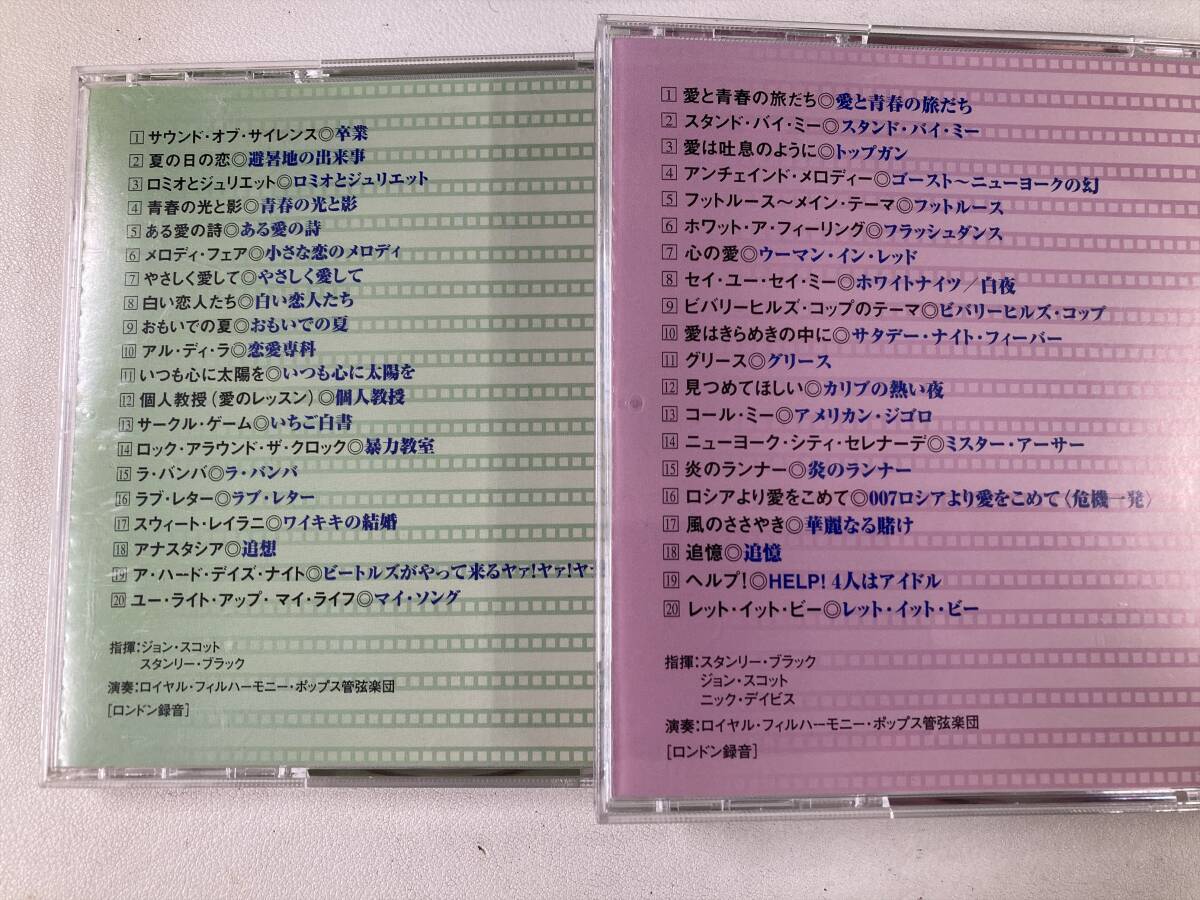 1 サウンド・オブ・サイレンス◎卒業
2 夏の日の恋◎避暑地の出来事
3 ロミオとジュリエット◎ロミオとジュリエット
4 青春の光と影◎青春の光と影
5 ある愛の詩◎ある愛の詩
6 メロディ・フェア◎小さな恋のメロディ
7 やさしく愛して◎やさしく愛して
8 白い恋人たち◎白い恋人たち
9 おもいでの夏◎おもいでの夏
10 アル・ディ・ラ◎恋愛専科
11 いつも心に太陽を◎いつも心に太陽を
12 個人教授(愛のレッスン)◎個人教授
13 サークル・ゲーム◎いちご白書
14 ロック・アラウンド・ザ・クロック◎暴力教室
15 ラ・バンバ◎ラ・バンバ
16 ラブ・レター◎ラブ・レター
17 スウィート・レイラニ◎ワイキキの結婚
18 アナスタシア◎追想
19 ア・ハード・デイズ・ナイト◎ビートルズがやって来るヤァ!ヤァ!
20 ユー・ライト・アップ・マイ・ライフ◎マイ・ソング
指揮:ジョン・スコット
スタンリー・ブラック
演奏:ロイヤル・フィルハーモニー・ポップス管弦楽団
[ロンドン録音]
1 愛と青春の旅だち◎愛と青春の旅だち
2 スタンド・バイ・ミー◎スタンド・バイ・ミー
3 愛は吐息のように◎トップガン
4 アンチェインド・メロディー◎ゴースト〜ニューヨークの幻
5 フットルース〜メイン・テーマ◎フットルース
6 ホワット・ア・フィーリング◎フラッシュダンス
7 心の愛◎ウーマン・イン・レッド
8 セイ・ユー・セイ・ミー◎ホワイトナイツ/白夜
9 ビバリーヒルズ・コップのテーマ◎ビバリーヒルズ・コップ
10 愛はきらめきの中に◎サタデー・ナイト・フィーバー
11 グリース◎グリース
12 見つめてほしい◎カリブの熱い夜
13 コール・ミー◎アメリカン・ジゴロ
14 ニューヨーク・シティ・セレナーデ◎ミスター・アーサー
15 炎のランナー◎炎のランナー
16 ロシアより愛をこめて◎007ロシアより愛をこめて〈危機一発〉
17 風のささやき◎華麗なる賭け
18 追憶◎追憶
19 ヘルプ!◎HELP! 4人はアイドル
20 レット・イット・ビー◎レット・イット・ビー
指揮:スタンリー・ブラック
ジョン・スコット
ニック・デイビス
演奏:ロイヤル・フィルハーモニー・ポップス管弦楽団
[ロンドン録音]